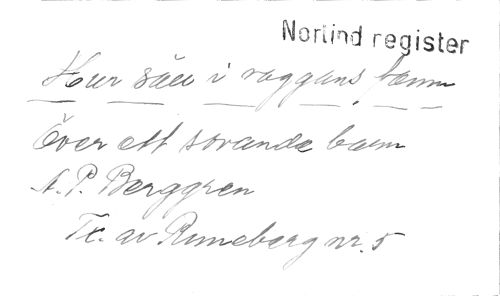 Norlind register
Hur säll i vaggans famn
Över ett sovande barn
A. P. Berggren
Tx. av Runeberg nr. 5